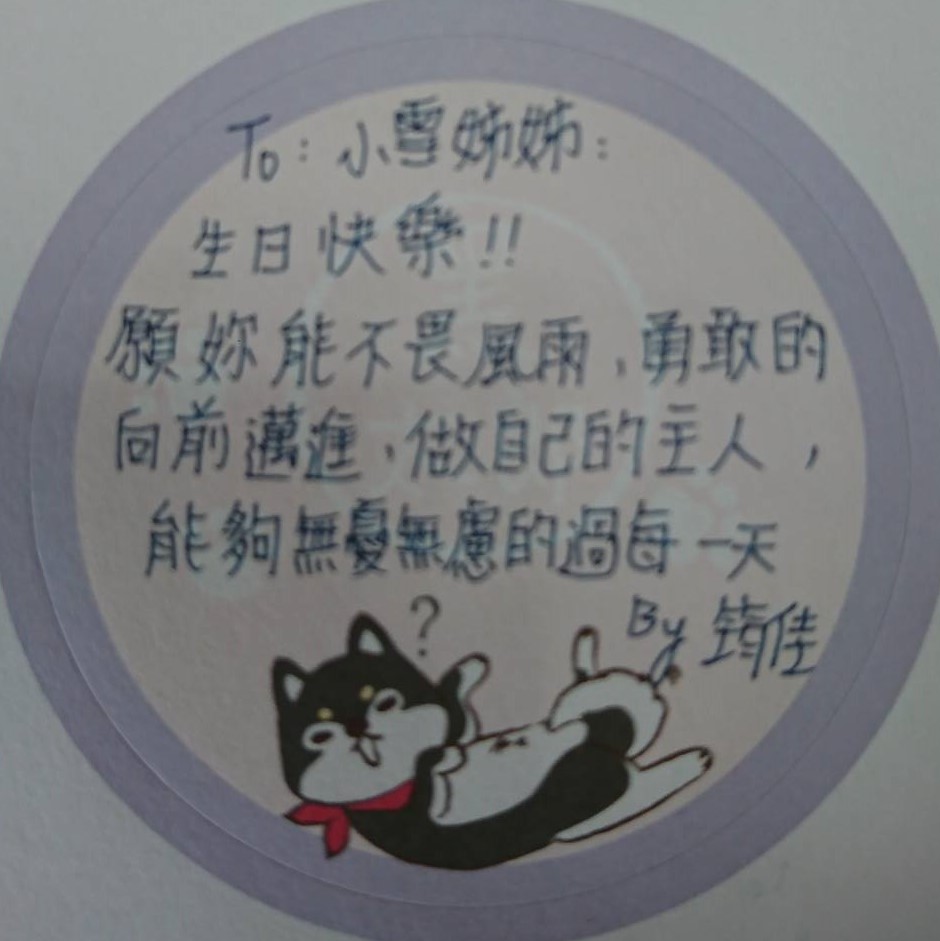 To：小雪姊姊：
生日快樂!!
願妳能不畏風雨，勇敢的
向前邁進，做自己的主人，
能夠無憂無慮的過每一天
?
By 筠佳